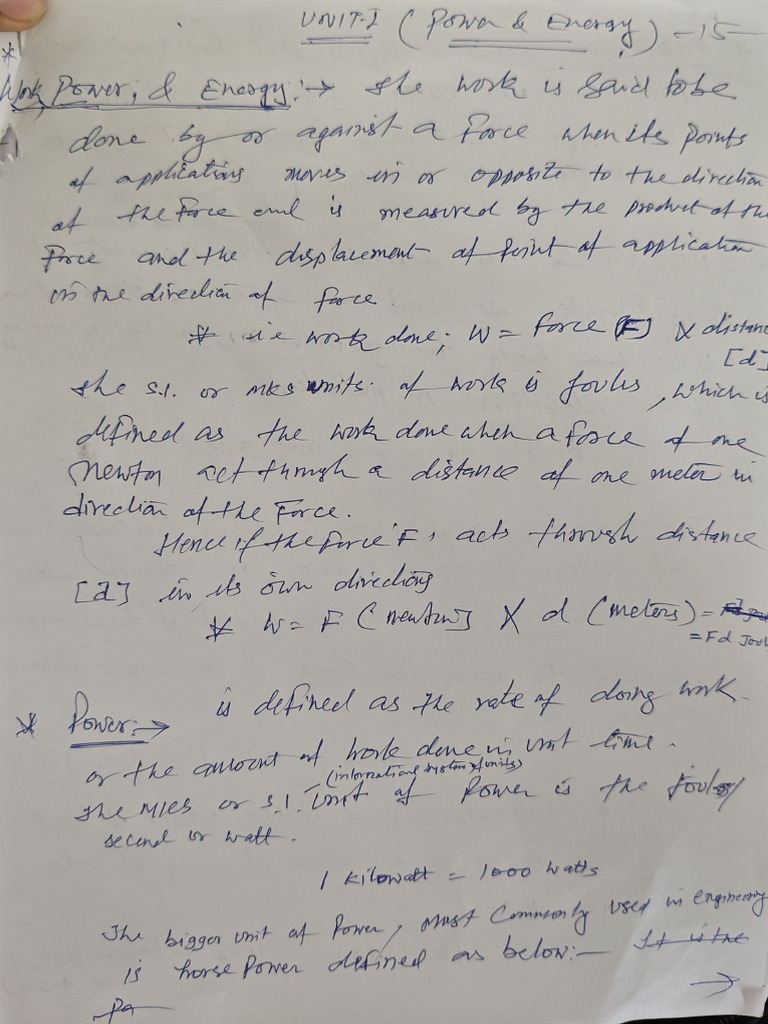 UNIT-I (Power & Energy) -15-
* Work, Power, & Energy:→ The work is said to be
done by or against a Force when its points
of applications moves in or opposite to the direction
of the Force and is measured by the product of the
Force and the displacement of point of application
in the direction of force
* i.e work done; W = Force [F] X distance
[d]
The S.I. or MKS units. of work is Joules, which is
defined as the work done when a force of one
Newton act through a distance of one meter in
direction of the Force.
Hence if the Force 'F', acts through distance
[d] in its own directions
* W = F (newton] X d (meters) =
= Fd Joul
* Power:→ is defined as the rate of doing work.
or the amount of work done in unit time.
(international system of units)
The MKS or S.I. Unit of Power is the Joules/
second or watt.
1 Kilowatt = 1000 watts
The bigger unit of Power, most Commonly used in engineering
is horse Power defined as below:- It is the
→
Pa